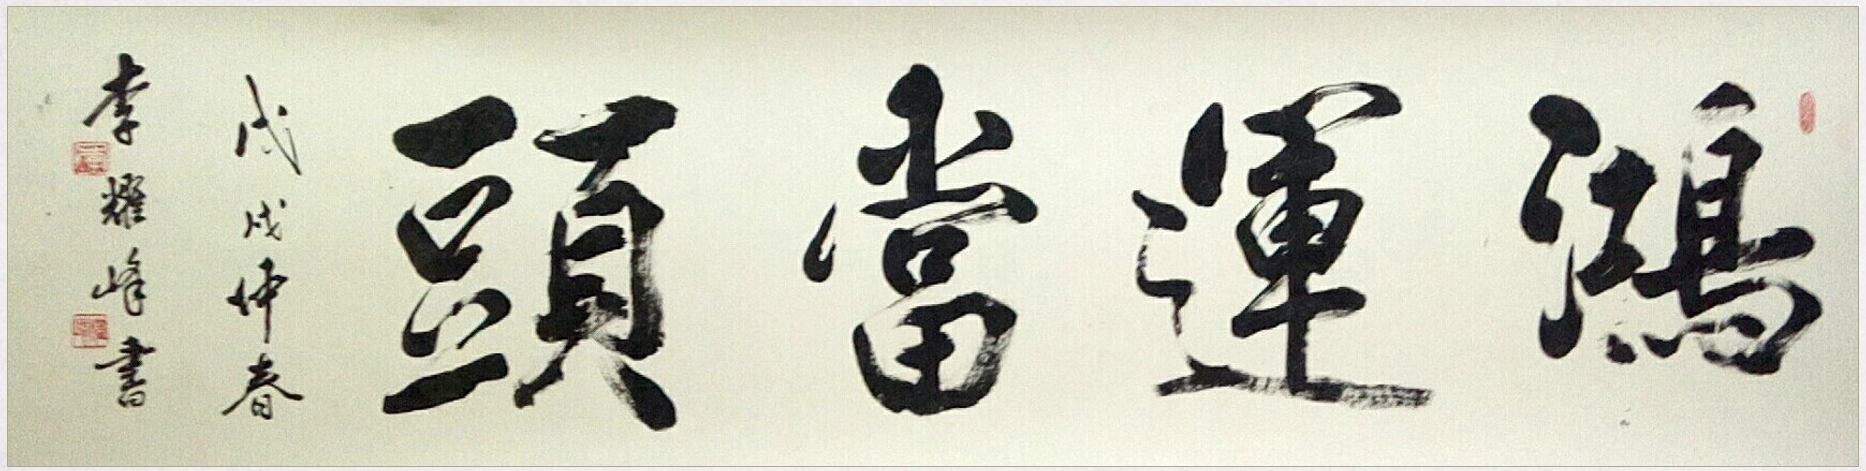 鴻運當頭
戊戌仲春
李耀峰書